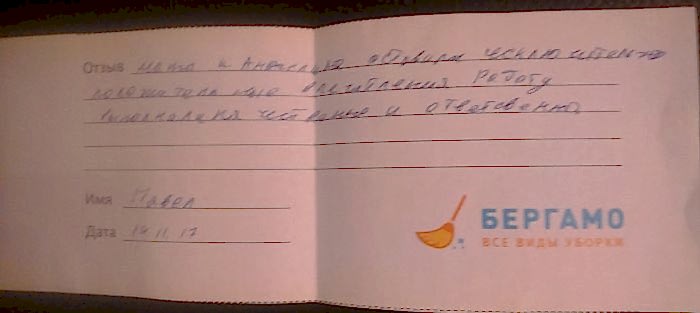 Отзыв Маша и Анжелика оставили исключительно
положительные впечатления Работу
выполняли качественно и ответственно
Имя Павел
Дата 19.11.17
БЕРГАМО
ВСЕ ВИДЫ УБОРКИ